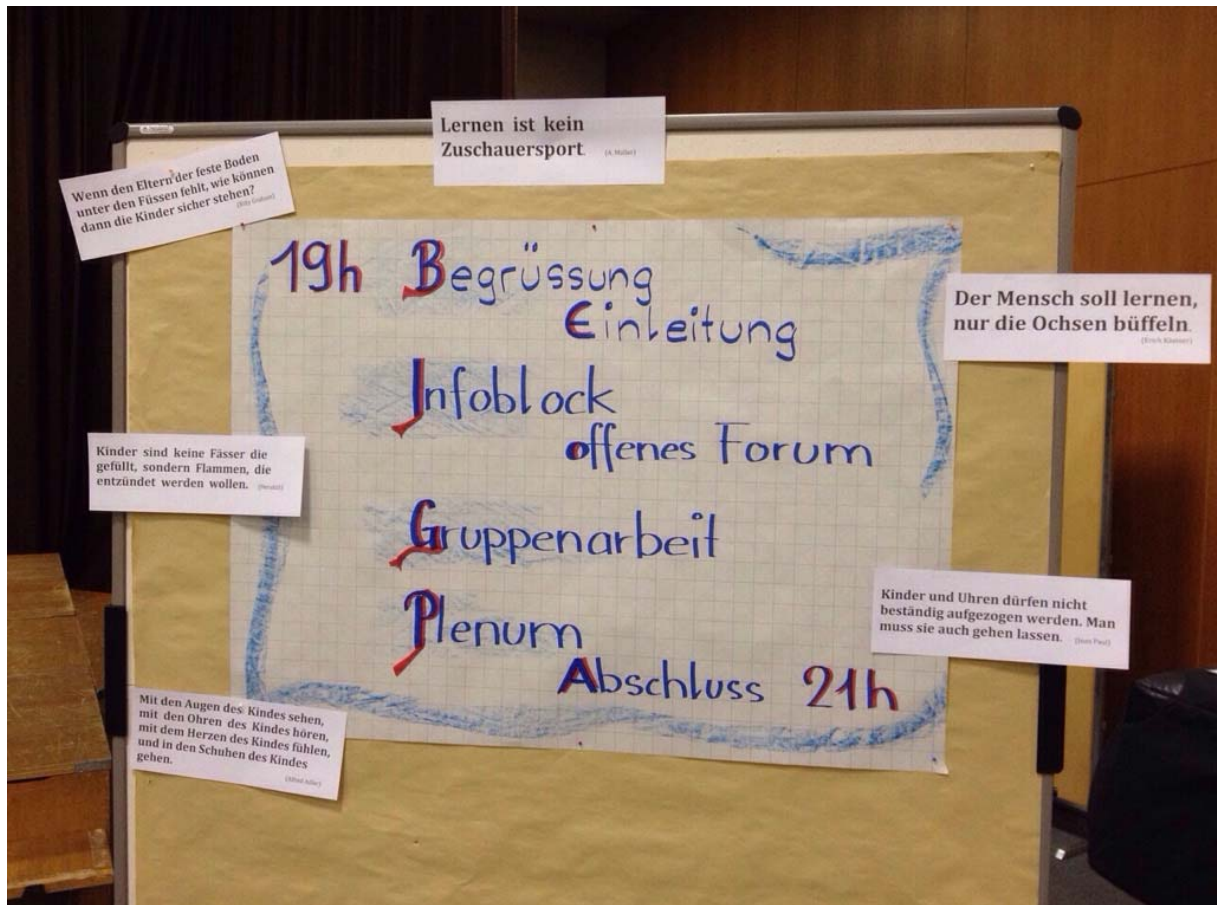 Lernen ist kein
Zuschauersport.
(A. Müller)
Wenn den Eltern der feste Boden
unter den Füssen fehlt, wie können
dann die Kinder sicher stehen?
19h Begrüssung
Einleitung
Infoblock
offenes Forum
Gruppenarbeit
Plenum
Abschluss 21h
Der Mensch soll lernen,
nur die Ochsen büffeln.
(Erich Kästner)
Kinder sind keine Fässer die
gefüllt, sondern Flammen, die
entzündet werden wollen.
Kinder und Uhren dürfen nicht
beständig aufgezogen werden. Man
muss sie auch gehen lassen. (Jean Paul)
Mit den Augen des Kindes sehen,
mit den Ohren des Kindes hören,
mit dem Herzen des Kindes fühlen,
und in den Schuhen des Kindes
gehen.
(Alfred Adler)